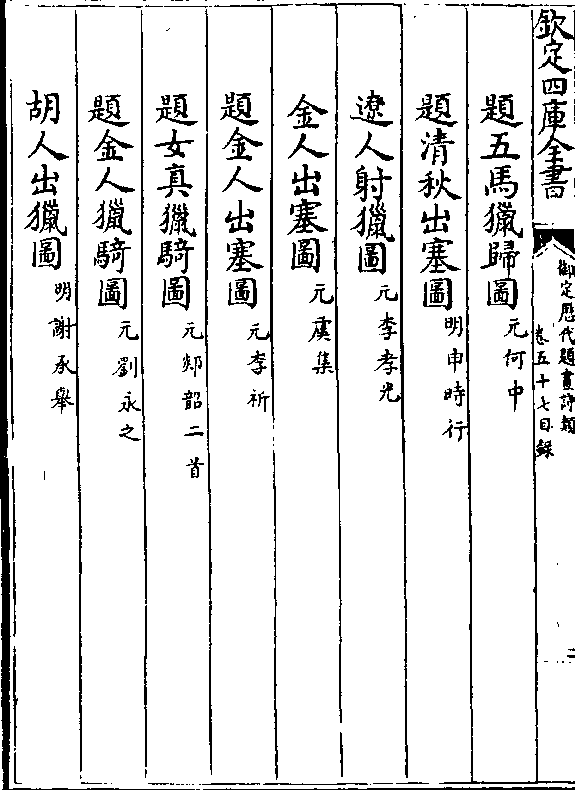 欽定四庫全書
御定歷代題畫詩類
卷五十七目錄
二
題五馬獵歸圖 元何中
題清秋出塞圖 明申時行
遼人射獵圖 元李孝光
金人出塞圖 元虞集
題金人出塞圖 元李祈
題女真獵騎圖 元郯韶二首
題金人獵騎圖 元劉永之
胡人出獵圖 明謝承舉